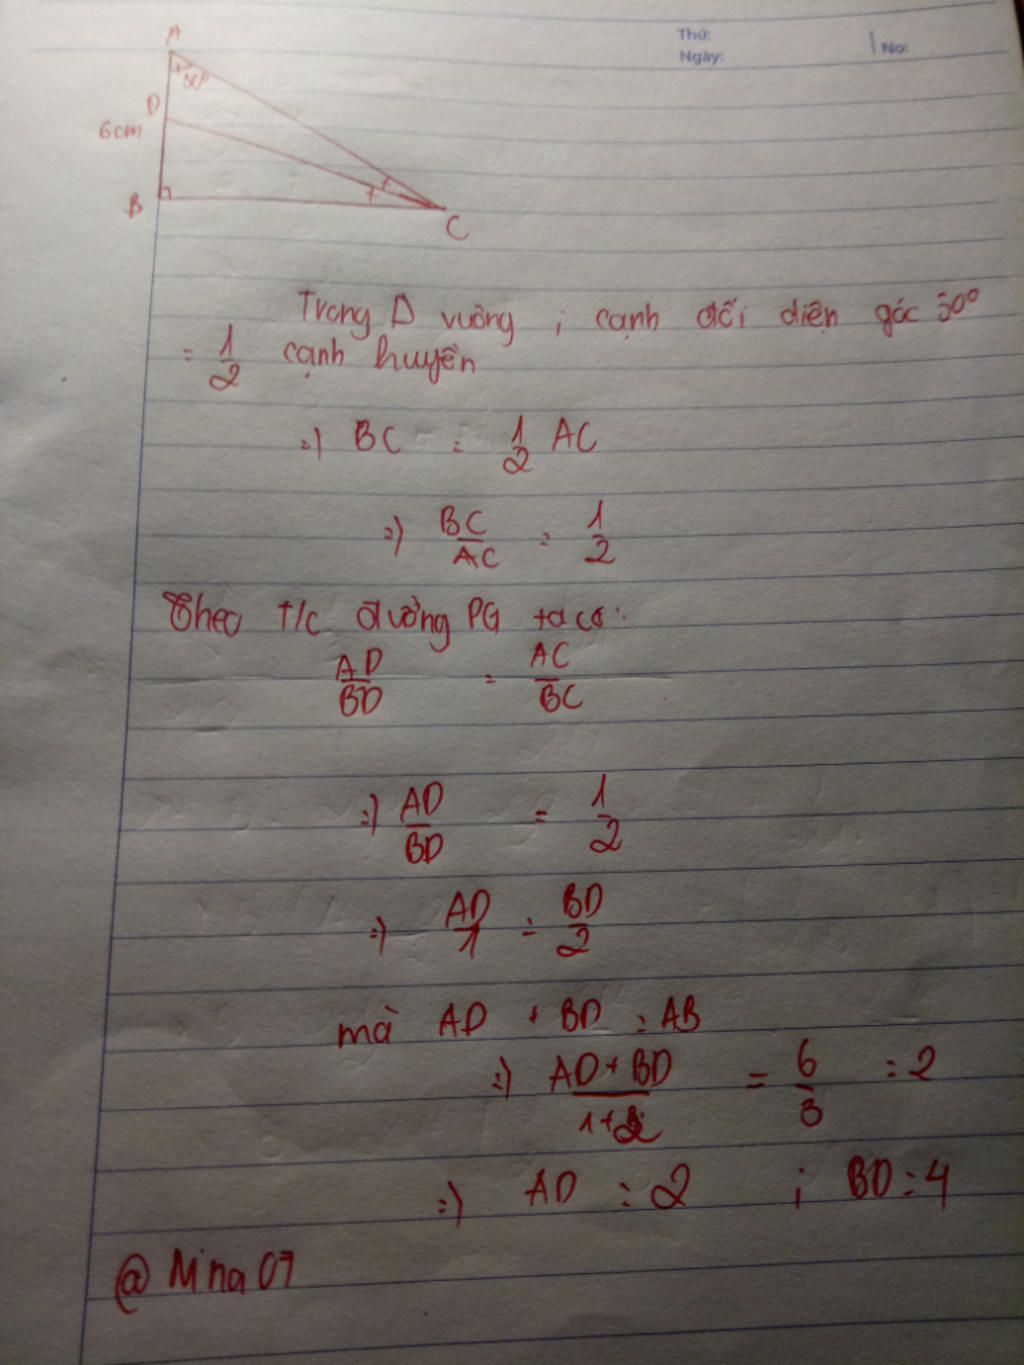 Thứ:
Ngày:
No:
A
30°
D
6cm
B
C
Trong Δ vuông ; cạnh đối diện góc 30°
= 1/2 cạnh huyền
=) BC = 1/2 AC
=) BC/AC = 1/2
Theo t/c đường PG ta có:
AD/BD = AC/BC
=) AD/BD = 1/2
=) AD/1 = BD/2
mà AD + BD = AB
=) AD + BD/1+2 = 6/3 = 2
=) AD = 2 ; BD = 4
@ Mina07